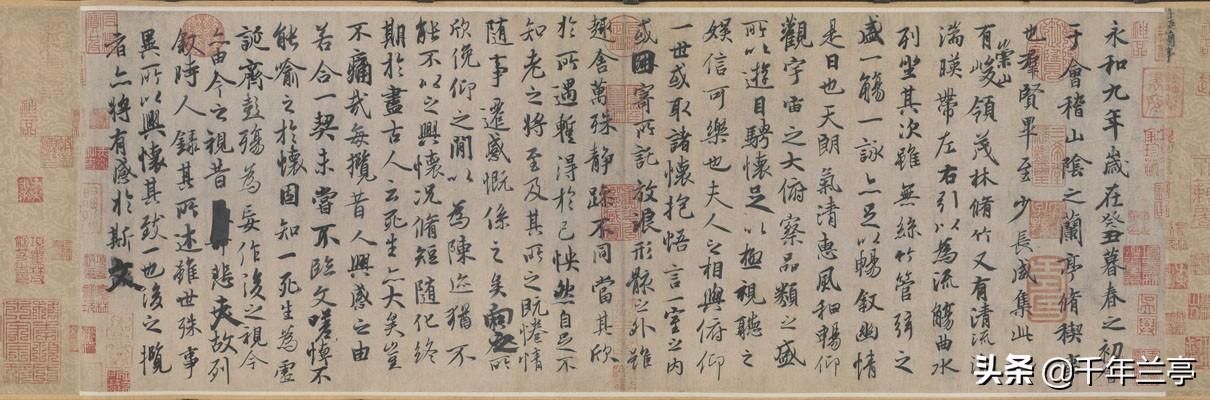 永和九年歲在癸丑暮春之初會
于會稽山陰之蘭亭脩稧事
也羣賢畢至少長咸集此
有崇山峻領茂林脩竹又有清流
湍暎帶左右引以為流觴曲水
列坐其次雖無絲竹管弦之
盛一觴一詠亦足以暢叙幽情
是日也天朗氣清惠風和暢仰
觀宇宙之大俯察品類之盛
所以遊目騁懷足以極視聽之
娛信可樂也夫人之相與俯仰
一世或取諸懷抱悟言一室之內
或因寄所託放浪形骸之外雖
趣舍萬殊静躁不同當其欣
於所遇暫得於己怏然自足不
知老之將至及其所之既惓情
隨事遷感慨係之矣向之所
欣俛仰之閒以為陳迹猶不
能不以之興懷況脩短隨化終
期於盡古人云死生亦大矣豈
不痛哉每攬昔人興感之由
若合一契未嘗不臨文嗟悼不
能喻之於懷固知一死生為虛
誕齊彭殤為妄作後之視今
亦由今之視昔悲夫故列
叙時人錄其所述雖世殊事
異所以興懷其致一也後之攬
者亦將有感於斯文
头条 @千年兰亭